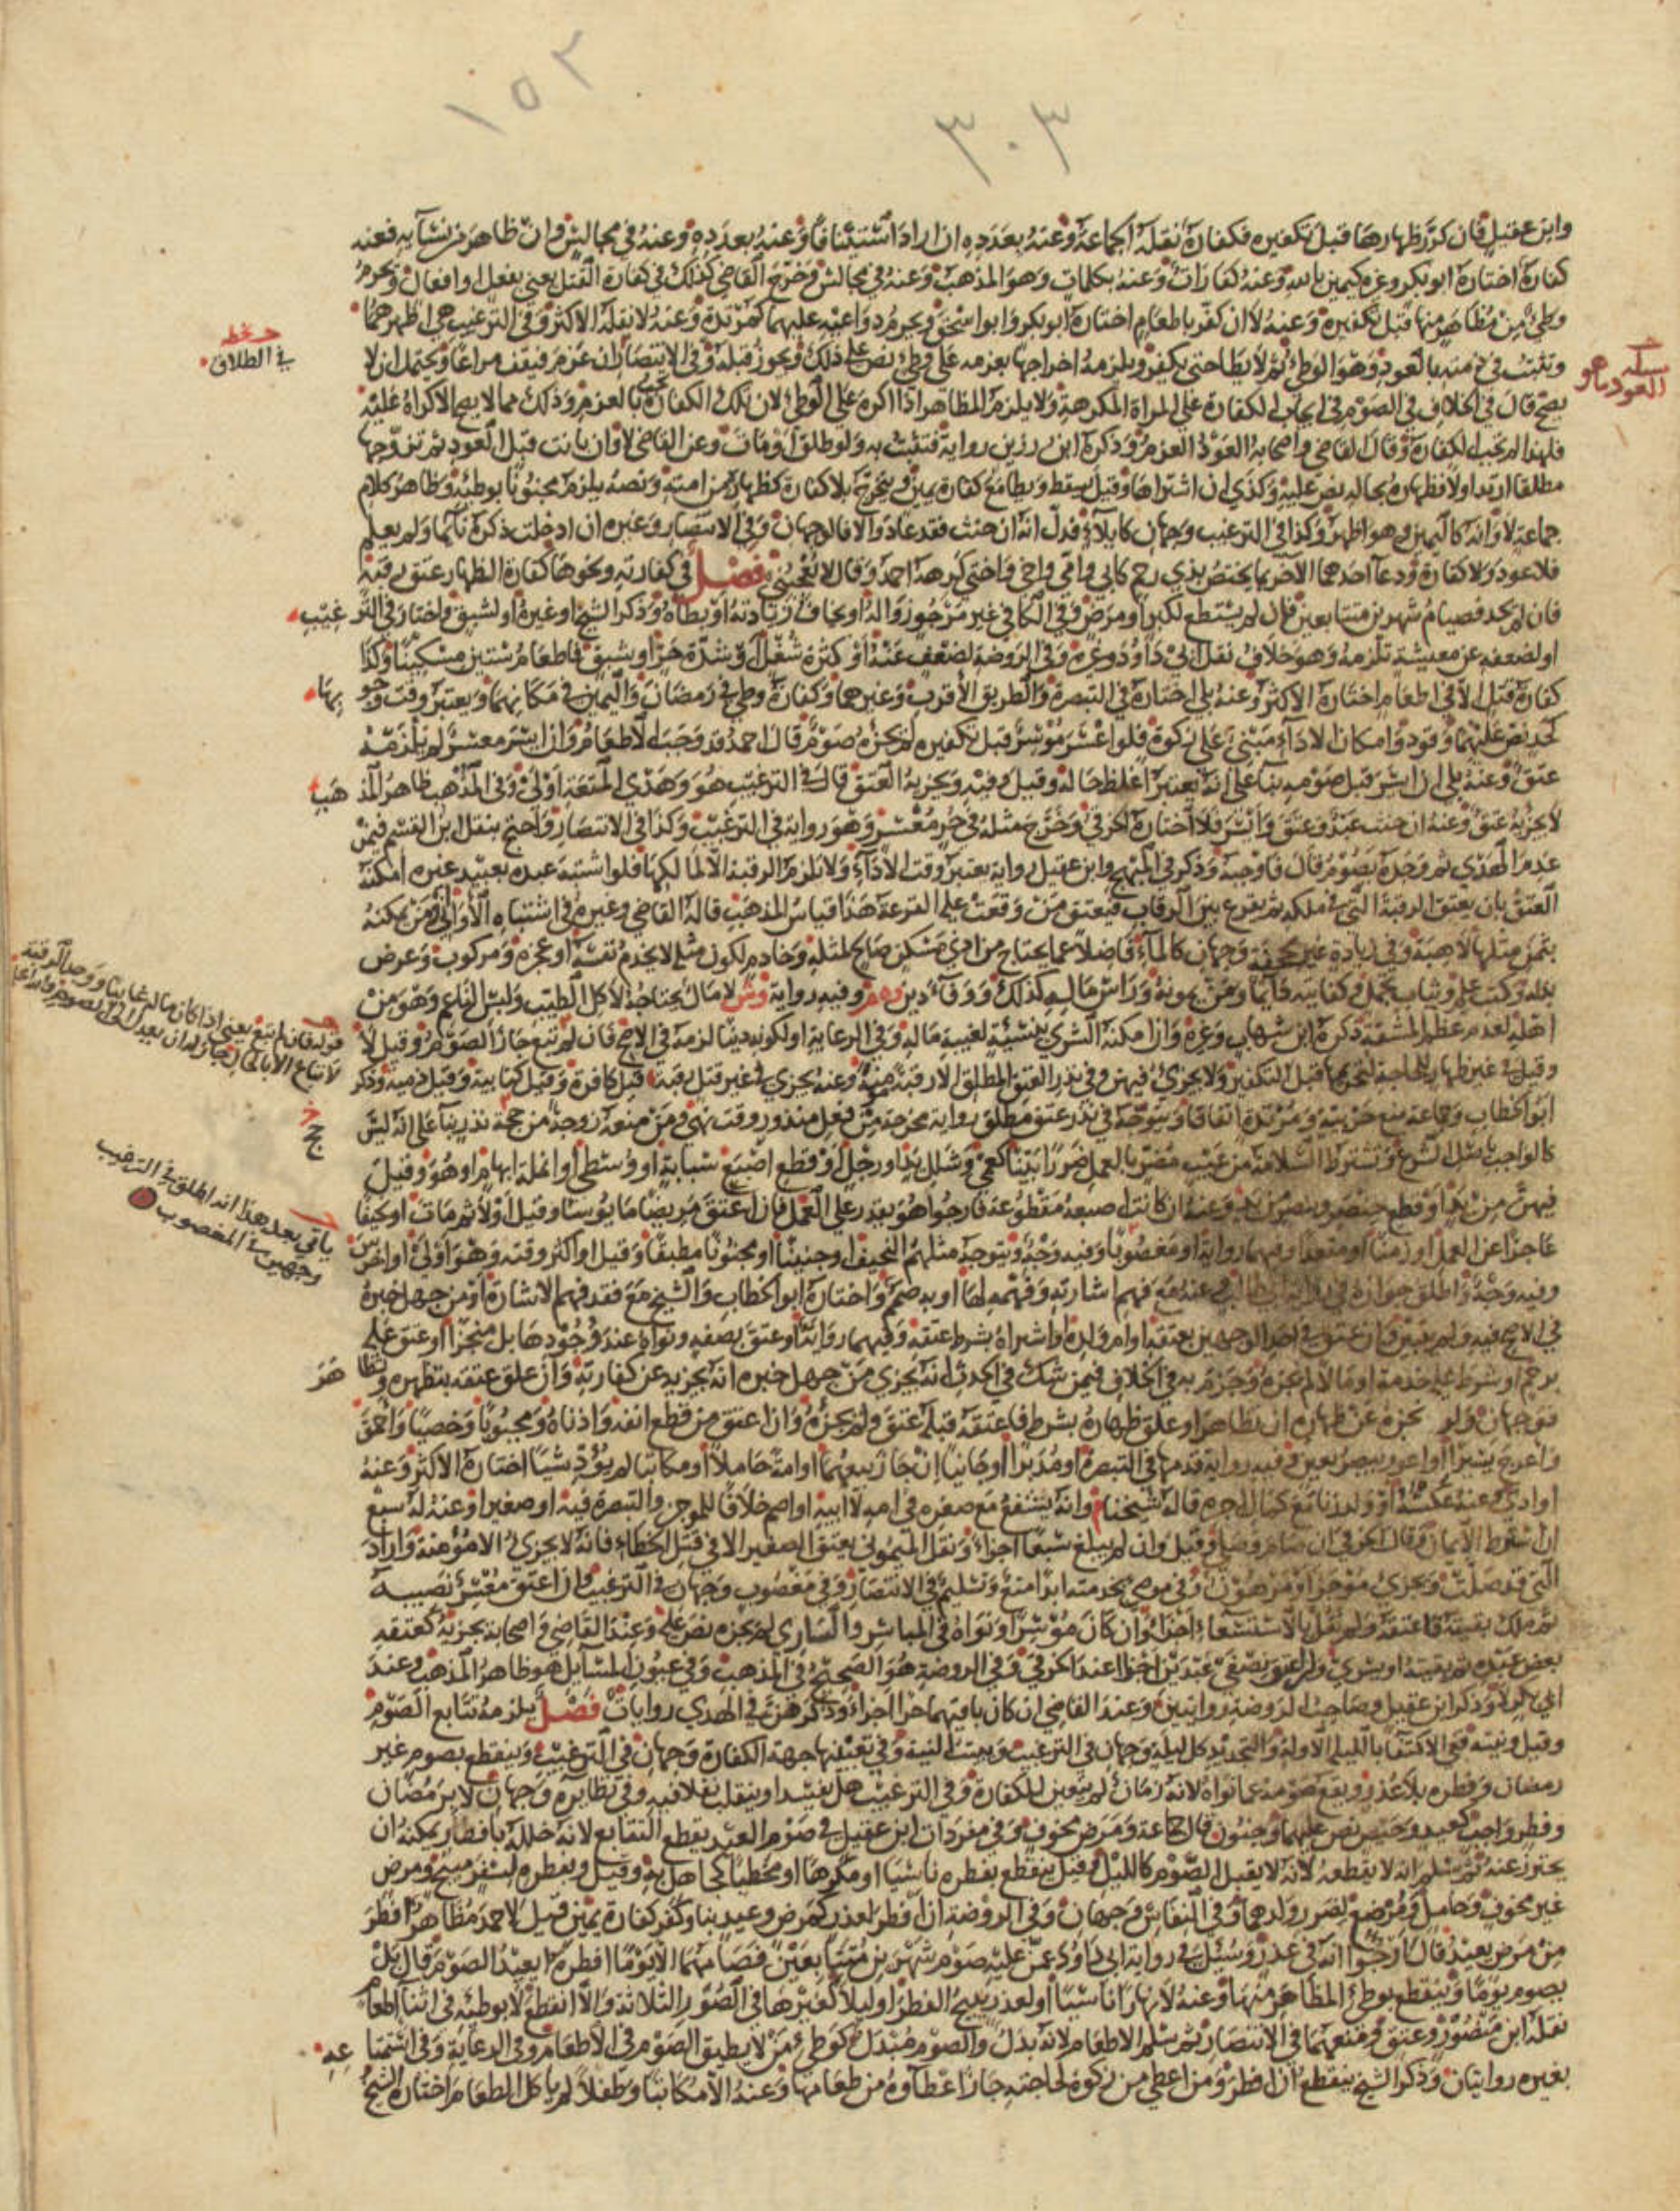 ١٥٢
٣٠٣
وابن عقيل فان كرر ظهارها قبل تكفيره فكفارة نقله الجماعة وعنه بعدده ان اراد استئنافا وعنه بعدده وعنه في مجالس وان ظاهر من نسائه فعنه
كفارة اختاره ابو بكر وغيره كيمين بالله وعنه كفارات وعنه بكلمات وهو المذهب وعنه في مجالس وخرج القاضي كذلك في كفارة القتل يعني بفعل او افعال ويحرم
وطئ من ظاهر منها قبل تكفيره وعنه لا ان كفر باطعام اختاره ابو بكر وابو اسحق ويحرم دواعيه عليهما كمرتدة وعنه لا نقله الاكثر وفي الترغيب هي اظهرهما
وتثبت في ذمته بالعود وهو الوطئ ثم لا يطا حتى يكفر ويلزمه اخراجها بعزمه على وطئ نص على ذلك ويجوز قبله وفي الانتصار ان عزم فيقف مراعا ويحتمل ان لا
يصح قال في الخلاف في الصوم في ايجاب الكفارة على المراة المكرهة ولا يلزم المظاهر اذا اكره على الوطئ لان تلك الكفارة تجب بالعزم وذلك مما لا يصح الاكراه عليه
فلهذا لم تجب الكفارة وقال القاضي واصحابه العود العزم وذكره ابن رزين رواية فتثبت به ولو طلق او مات وعن القاضي لا وان بانت قبل العود ثم تزوجها
مطلقا ارتد اولا فظهاره بحاله نص عليه وكذا ان اشتراها وقيل يسقط ويطا مع كفارة يمين ويتخرج بلا كفارة كظهاره من امته ونصه يلزم مجنونا بوطئه وظاهر كلام
جماعة لا وانه كاليمين وهو اظهر وكذا في الترغيب وجهان كايلاء فدل انه ان حنث فقد عاد والا فالوجهان وفي الانتصار وغيره ان ادخلت ذكره نائما ولم يعلم
فلا عود ولا كفارة ودعا احدهما الآخر بما يختص بذي رحم كابي وامي واخي واختي كرهه احمد وقال لا يعجبني فصل في كفارته ونحوها كفارة الظهار عتق رقبة
فان لم يجد فصيام شهرين متتابعين فان لم يستطع لكبر او مرض وفي الكافي غير مرجو زواله او يخاف زيادته او بطأه وذكر الشيخ او غيره او لشبق واختار في الترغيب
او لضعفه عن معيشة تلزمه وهو خلاف نقل ابي داود وغيره وفي الروضة لضعف عنه او كثرة شغل او شدة حر او شبق فاطعام ستين مسكينا وكذا
كفارة قتل الا في اطعام اختاره الاكثر وعنه بلى اختاره في التبصرة والطريق الاقرب وغيرهما وكفارة وطئ في رمضان واليمين في مكانهما ويعتبر وقت وجوبها
كحد نص عليهما وقود وامكان الاداء مبني على زكوة فلو اعسر موسر قبل تكفيره لم يجزه صوم قال احمد قد وجب الاطعام وان ايسر معسر لم يلزمه
عتق وعنه بلى ان ايسر قبل صومه بناء على انه يعتبر اغلظ حاله وقيل وفيه ويجزيه العتق قال في الترغيب هو وهدي المتعة اولى وفي المذهب ظاهر المذهب
لا يجزيه عتق وعنه ان حنث عبد وعتق وايسر فلا اختاره الخرقي وخرج مثله في حر معسر وهو رواية في الترغيب وكذا في الانتصار واحتج بنقل ابن القسم فيمن
عدم الهدي ثم وجده يصوم قال فاوجبه وذكر في المبهج وابن عقيل رواية يعتبر وقت الاداء ولا تلزم الرقبة الا لمالكها فلو اشتبه عبده بعبيد غيره امكنه
العتق بان يعتق الرقبة التي في ملكه ثم يقرع بين الرقاب فيعتق من وقعت عليه القرعة هذا قياس المذهب قاله القاضي وغيره في اشتباه الاواني ومن يمكنه
بثمن مثلها لا هبة وفي زيادة غير مجحفة وجهان كالماء فاضلا عما يحتاج من ادنى مسكن صالح لمثله وخادم لكون مثله لا يخدم نفسه او عجزه ومركوب وعرض
بذله وكتب علم وثياب تجمل وكفايته دائما ومن يمونه وراس ماله كذلك ووفاء دين وهم وفيه رواية وش لا مال يحتاجه لاكل الطيب ولبس الناعم وهو من
اهله لعدم عظم المشقة ذكره ابن شهاب وغيره وان امكنه الشرى بنسيئة لغيبة ماله وفي الرعاية او لكونه دينا لزمه في الاصح فان لم تبع جاز الصوم وقيل لا
وقيل في غير ظهار للحاجة لتحريمها قبل التكفير ولا يجزئ فيهن وفي نذر العتق المطلق الا رقبة مؤمنة وعنه يجزي في غير قتل رقبة قيل كافرة وقيل كتابية وقيل ذمية وذكر
في الطلاق
ابو الخطاب وجماعة منع حربية ومرتدة اتفاقا ويتوجه في نذر عتق مطلق رواية مخرجة من فعل منذور وقت نهي ومن منع زوجة من حجة نذر بناء على انه ليس
كالواجب باصل الشرع وتشترط السلامة من عيب مضر بالعمل ضررا بينا كعمى وشلل يد او رجل او قطع اصبع سبابة او وسطى او انملة ابهام او هو وقيل
فيهن من يد او قطع خنصر وبنصر من يد وعنه ان كانت اصبعه مقطوعة فارجوا هو يقدر على العمل فان اعتق مريضا مايوسا وقيل اولا ثم مات او نحيفا
عاجزا عن العمل او زمنا او مقعدا وفيهما رواية او مغصوبا وفيه وجه ويتوجه مثلهم النحيف او جنينا او مجنونا مطبقا وقيل او اكثر وقته وهو اولى او اخرس
وفيه وجه واطلق جوازه في رواية ابي طالب وعنه مع فهم اشارته وفهمه لها او به صمم واختاره ابو الخطاب والشيخ مع فقد فهم الاشارة او من جهل خبره
في الاصح فيه ولم يتبين
فوجهان ولو نجزه عن ظهاره ان تظاهر او علق ظهاره بشرط فاعتقه قبله عتق ولم يجزه وان اعتق من قطع انفه واذناه ومجبوبا وخصيا واحمق
واعرج يسيرا او اعور يبصر بعين وفيه رواية قدمها في التبصرة او مدبرا او جانيا ان جاز بيعهما او امة حاملا او مكاتبا لم يؤد شيئا اختاره الاكثر وعنه
او ادى وعنه عكسه او ولد زنا مع كمال اجره قاله شيخنا وانه يشفع مع صغره في امه لا ابيه او اصم خلافا للموجز والتبصرة فيه او صغيرا وعنه له سبع
ان اشترط الايمان وقال الخرقي ان صام وصلى وقيل وان لم يبلغ سبعا اجزاء ونقل الميموني يعتق الصغير الا في قتل الخطاء فانه لا يجزئ الا مؤمنة واراد
التي قد صلت ويجزئ مؤجرا ومرهون وفي موصى بخدمته ابدا منع وتسليم في الانتصار وفي مغصوب وجهان في الترغيب وان اعتق معسر نصيبه
ثم ملك بقيته فاعتقه ولم نقل بالاستسعاء اجزاه وان كان موسرا ونواه في المباشر والساري لم يجزه نص عليه وعند القاضي واصحابه يجزيه كعتقه
بعض عبده ثم بقيته او يسري ولو اعتق نصفي عبدين اجزا عند الخرقي وفي الروضة هو الصحيح في المذهب وفي عيون المسايل هو ظاهر المذهب وعند
ابي بكر لا وذكر ابن عقيل وصاحب الروضة روايتين وعند القاضي ان كان باقيهما حرا اجزاء وذكر هن في الهدي روايات فصل يلزمه تتابع الصوم
وقيل ونيته ففي الاكتفاء بالليلة الاولة والتجديد كل ليلة وجهان في الترغيب ويبيت النية وفي تعيينها جهة الكفارة وجهان في الترغيب وينقطع بصوم غير
رمضان وفطره بلا عذر ويقع صومه عما نواه لانه زمان لم يتعين للكفارة وفي الترغيب هل يفسد او ينقلب نفلا فيه وفي نظايره وجهان لا برمضان
وفطر واجب كعيد وحيض نص عليهما وجنون قال جماعة ومرض مخوف وفي مفردات ابن عقيل في صوم العيد يقطع التتابع لانه خلله بافطار يمكنه ان
يحترز عنه ثم سلم انه لا يقطعه لانه لا يقبل الصوم كالليل وقيل ينقطع بفطره ناسيا او مكرها او مخطيا كجاهل به وقيل وبفطره لسفر مبيح ومرض
غير مخوف وحامل ومرضع لضرر ولدهما وفي النفاس وجهان وفي الروضة ان افطر لعذر كمرض وعيد بنا وكفر كفارة يمين قيل لاحمد مظاهر افطر
من مرض يعيد قال ارجوا انه في عذر وسئل في رواية ابي داود عمن عليه صوم شهرين متتابعين فصامهما الا يوما افطره ايعيد الصوم قال بل
يصوم يوما وينقطع بوطئ المظاهر منها وعنه لا نهارا ناسيا او لعذر يبيح الفطر او ليلا كغيرها في الصور الثلاثة والا انقطع لا بوطئه في اثناء اطعام
نقله ابن منصور وعتق ومنعهما في الانتصار ثم سلم الاطعام لانه بدل والصوم مبدل كوطئ من لا يطيق الصوم في الاطعام وفي الرعاية وفي استمتاعه
بغيره روايتان وذكر الشيخ ينقطع ان افطر ومن اعطي من زكوة لحاجته جاز اعطاؤه من طعامها وعنه الا مكاتبا وطفلا لم ياكل الطعام اختاره الشيخ